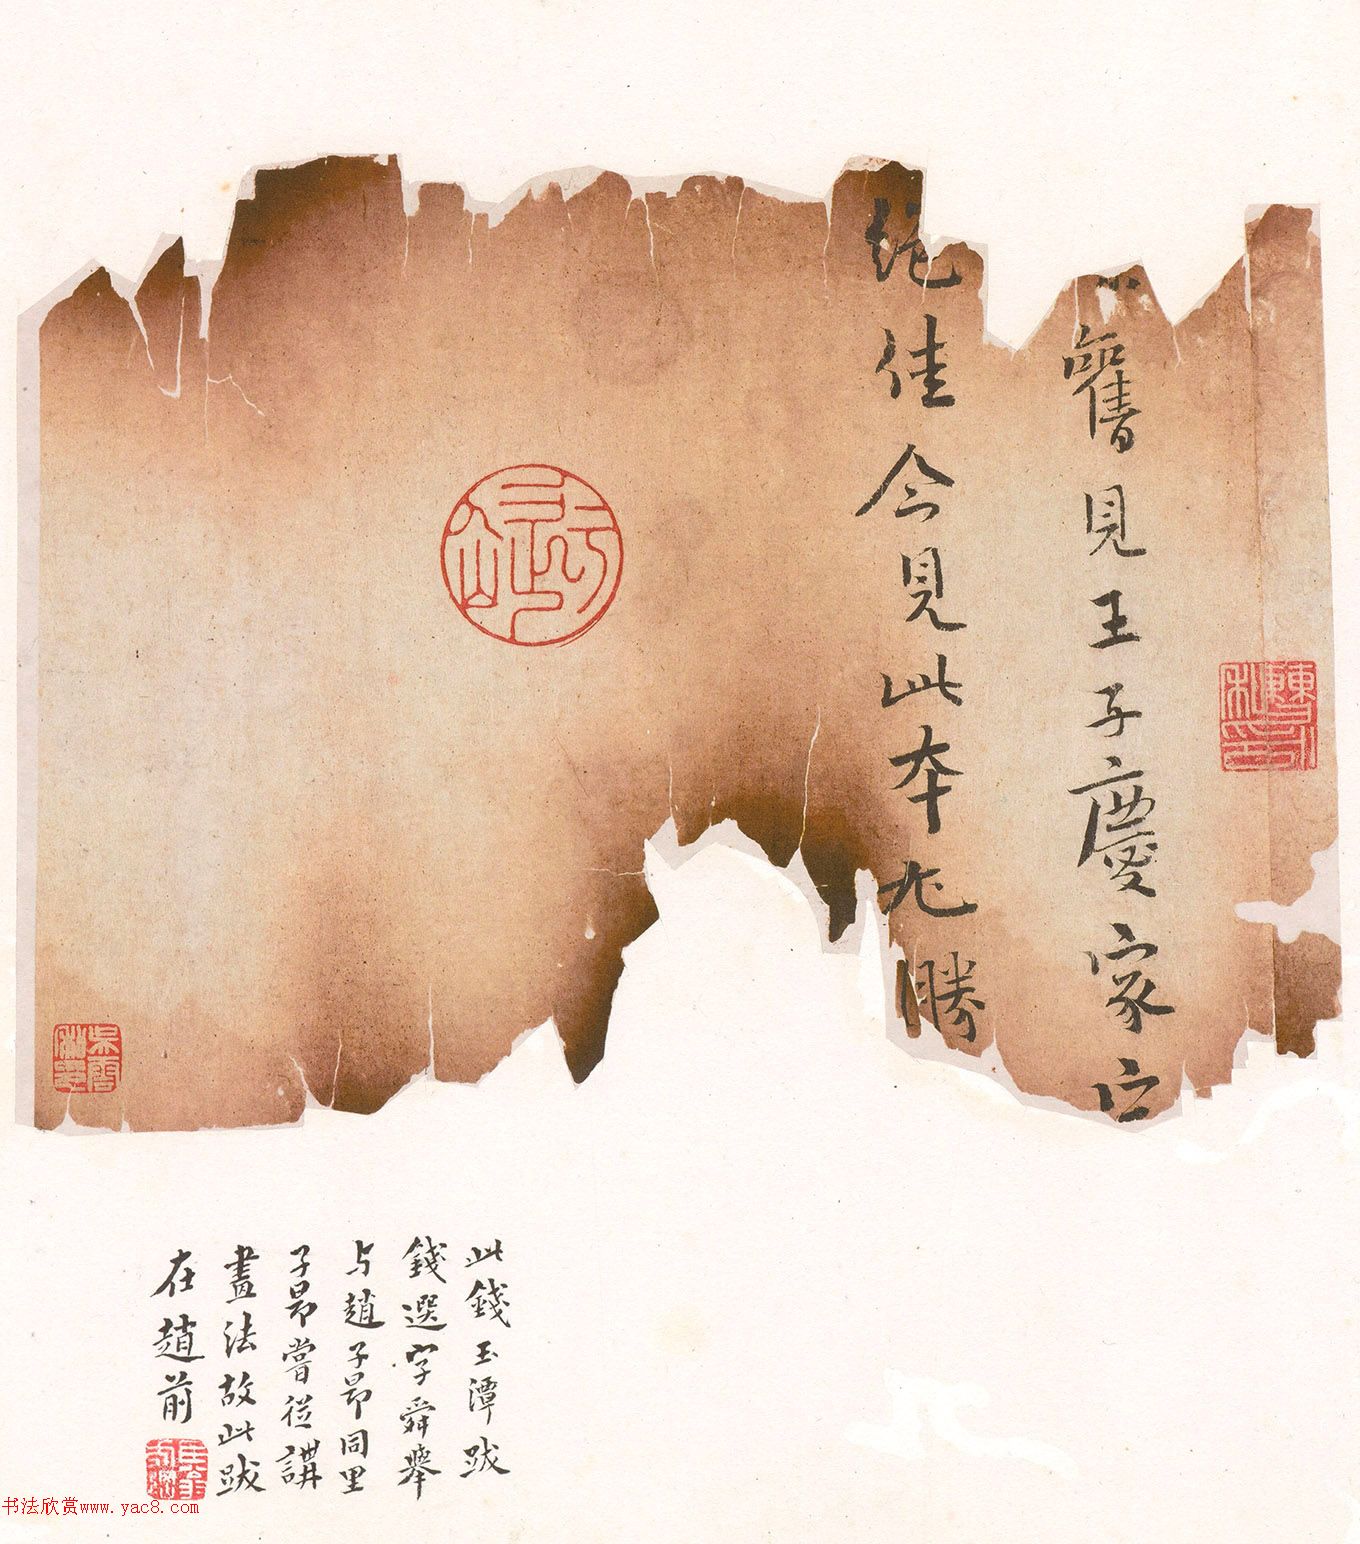 舊見王子慶家定
絕佳今見此本尤勝
此錢玉潭跋
錢選字舜舉
与趙子昂同里
子昂嘗從講
畫法故此跋
在趙前
书法欣赏www.yac8.com